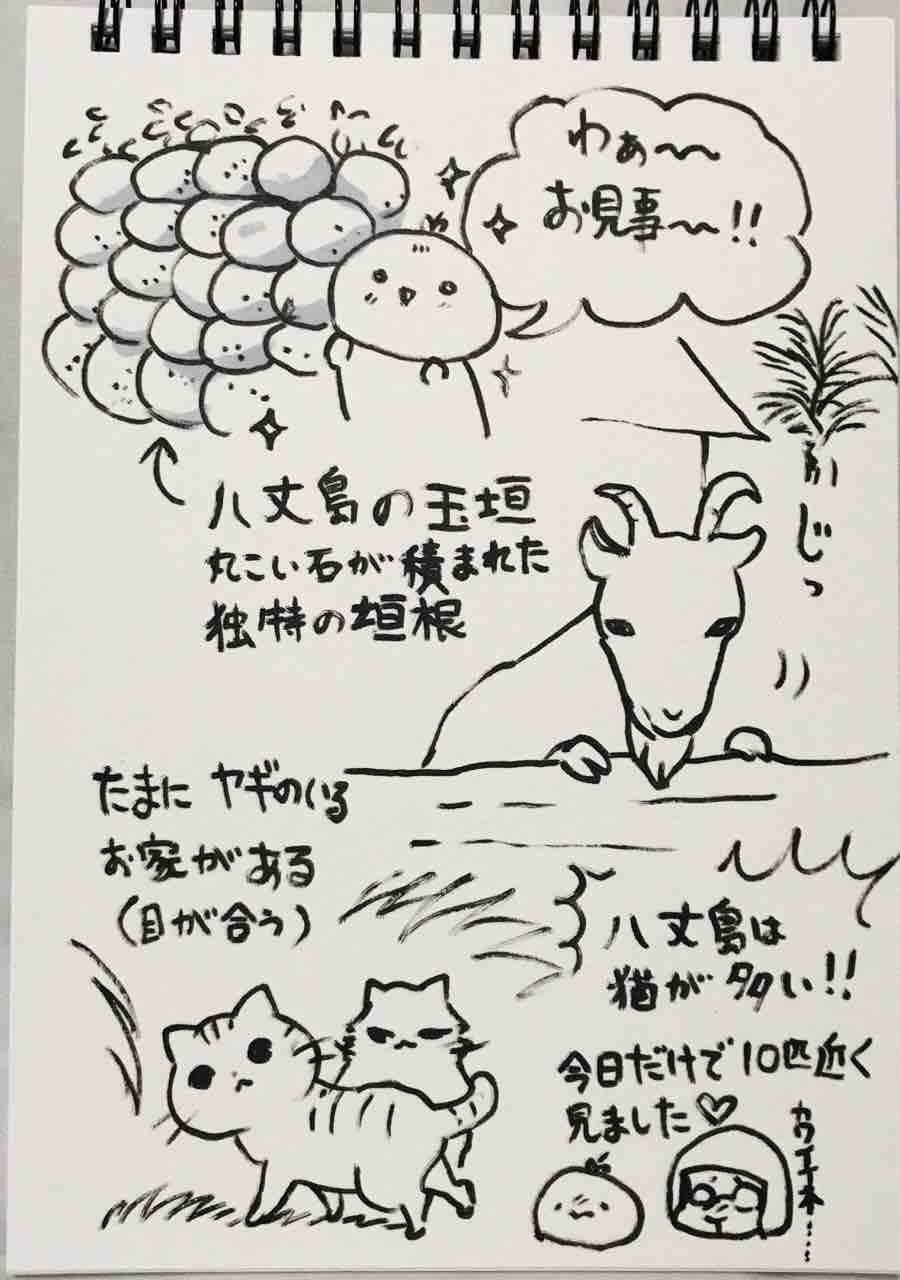 わぁ〜〜
お見事〜〜!!
八丈島の玉垣
丸こい石が積まれた
独特の垣根
がじっ
たまに ヤギのいる
お家がある
(目が合う)
八丈島は
猫が多い!!
今日だけで10匹近く
見ました♡
カワエエネ……